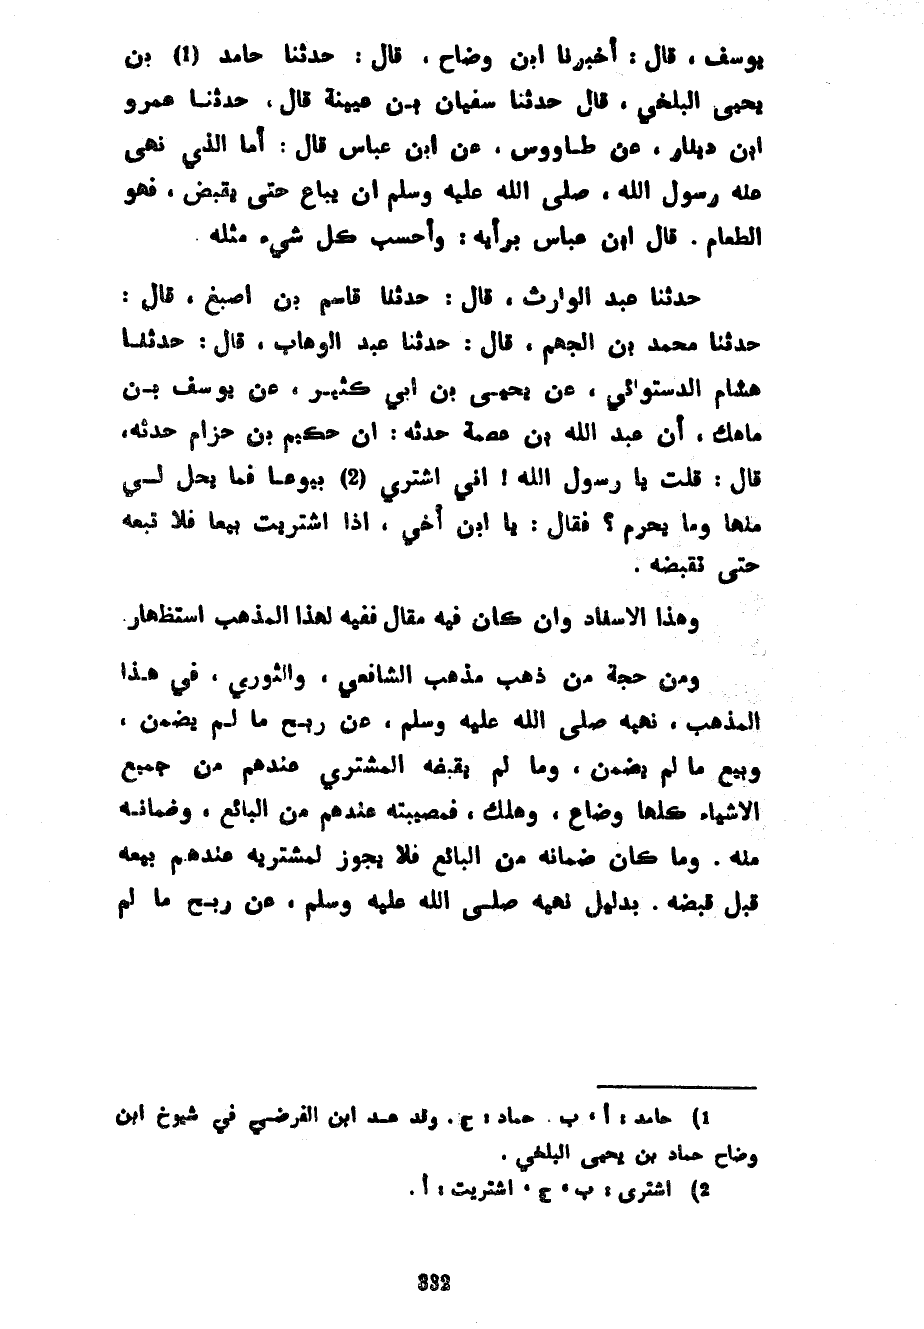 يوسف ، قال : أخبرنا ابن وضاح ، قال : حدثنا حامد (1) بن
يحيى البلخي ، قال حدثنا سفيان بن عيينة قال ، حدثنا عمرو
ابن دينار ، عن طاووس ، عن ابن عباس قال : أما الذي نهى
عنه رسول الله ، صلى الله عليه وسلم ان يباع حتى يقبض ، فهو
الطعام . قال ابن عباس برأيه : وأحسب كل شيء مثله .
حدثنا عبد الوارث ، قال : حدثنا قاسم بن اصبغ ، قال :
حدثنا محمد بن الجهم ، قال : حدثنا عبد الوهاب ، قال : حدثنا
هشام الدستوائي ، عن يحيى بن ابي كثير ، عن يوسف بن
ماهك ، أن عبد الله بن عصمة حدثه : ان حكيم بن حزام حدثه،
قال : قلت يا رسول الله ! اني اشتري (2) بيوعا فما يحل لي
منها وما يحرم ؟ فقال : يا ابن أخي ، اذا اشتريت بيعا فلا تبعه
حتى تقبضه .
وهذا الاسناد وان كان فيه مقال ففيه لهذا المذهب استظهار.
ومن حجة من ذهب مذهب الشافعي ، والثوري ، في هذا
المذهب ، نهيه صلى الله عليه وسلم ، عن ربح ما لم يضمن ،
وبيع ما لم يضمن ، وما لم يقبضه المشتري عندهم من جميع
الاشياء كلها وضاع ، وهلك ، فمصيبته عندهم من البائع ، وضمانه
منه . وما كان ضمانه من البائع فلا يجوز لمشتريه عندهم بيعه
قبل قبضه . بدليل نهيه صلى الله عليه وسلم ، عن ربح ما لم
1) حامد : أ ، ب . حماد : ج . وقد عد ابن الفرضي في شيوخ ابن
وضاح حماد بن يحيى البلخي .
2) اشترى : ب ، ج ، اشتريت : أ .
332